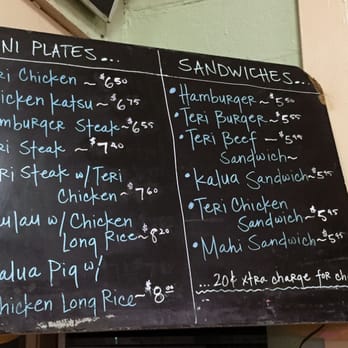 NI PLATES...
ri Chicken ~ $6.50
hicken Katsu ~ $6.75
amburger Steak ~ $6.55
ri Steak ~ $7.20
ri Steak w/ Teri
Chicken ~ $7.60
aulau w/ Chicken
Long Rice ~ $8.20
alua Pig w/
Chicken Long Rice ~ $8.00
SANDWICHES...
• Hamburger ~ $5.50
• Teri Burger ~ $5.55
• Teri Beef ~ $5.95
Sandwich ~
• Kalua Sandwich ~ $5.95
• Teri Chicken
Sandwich ~ $5.95
• Mahi Sandwich ~ $5.95
...20¢ xtra charge for ch